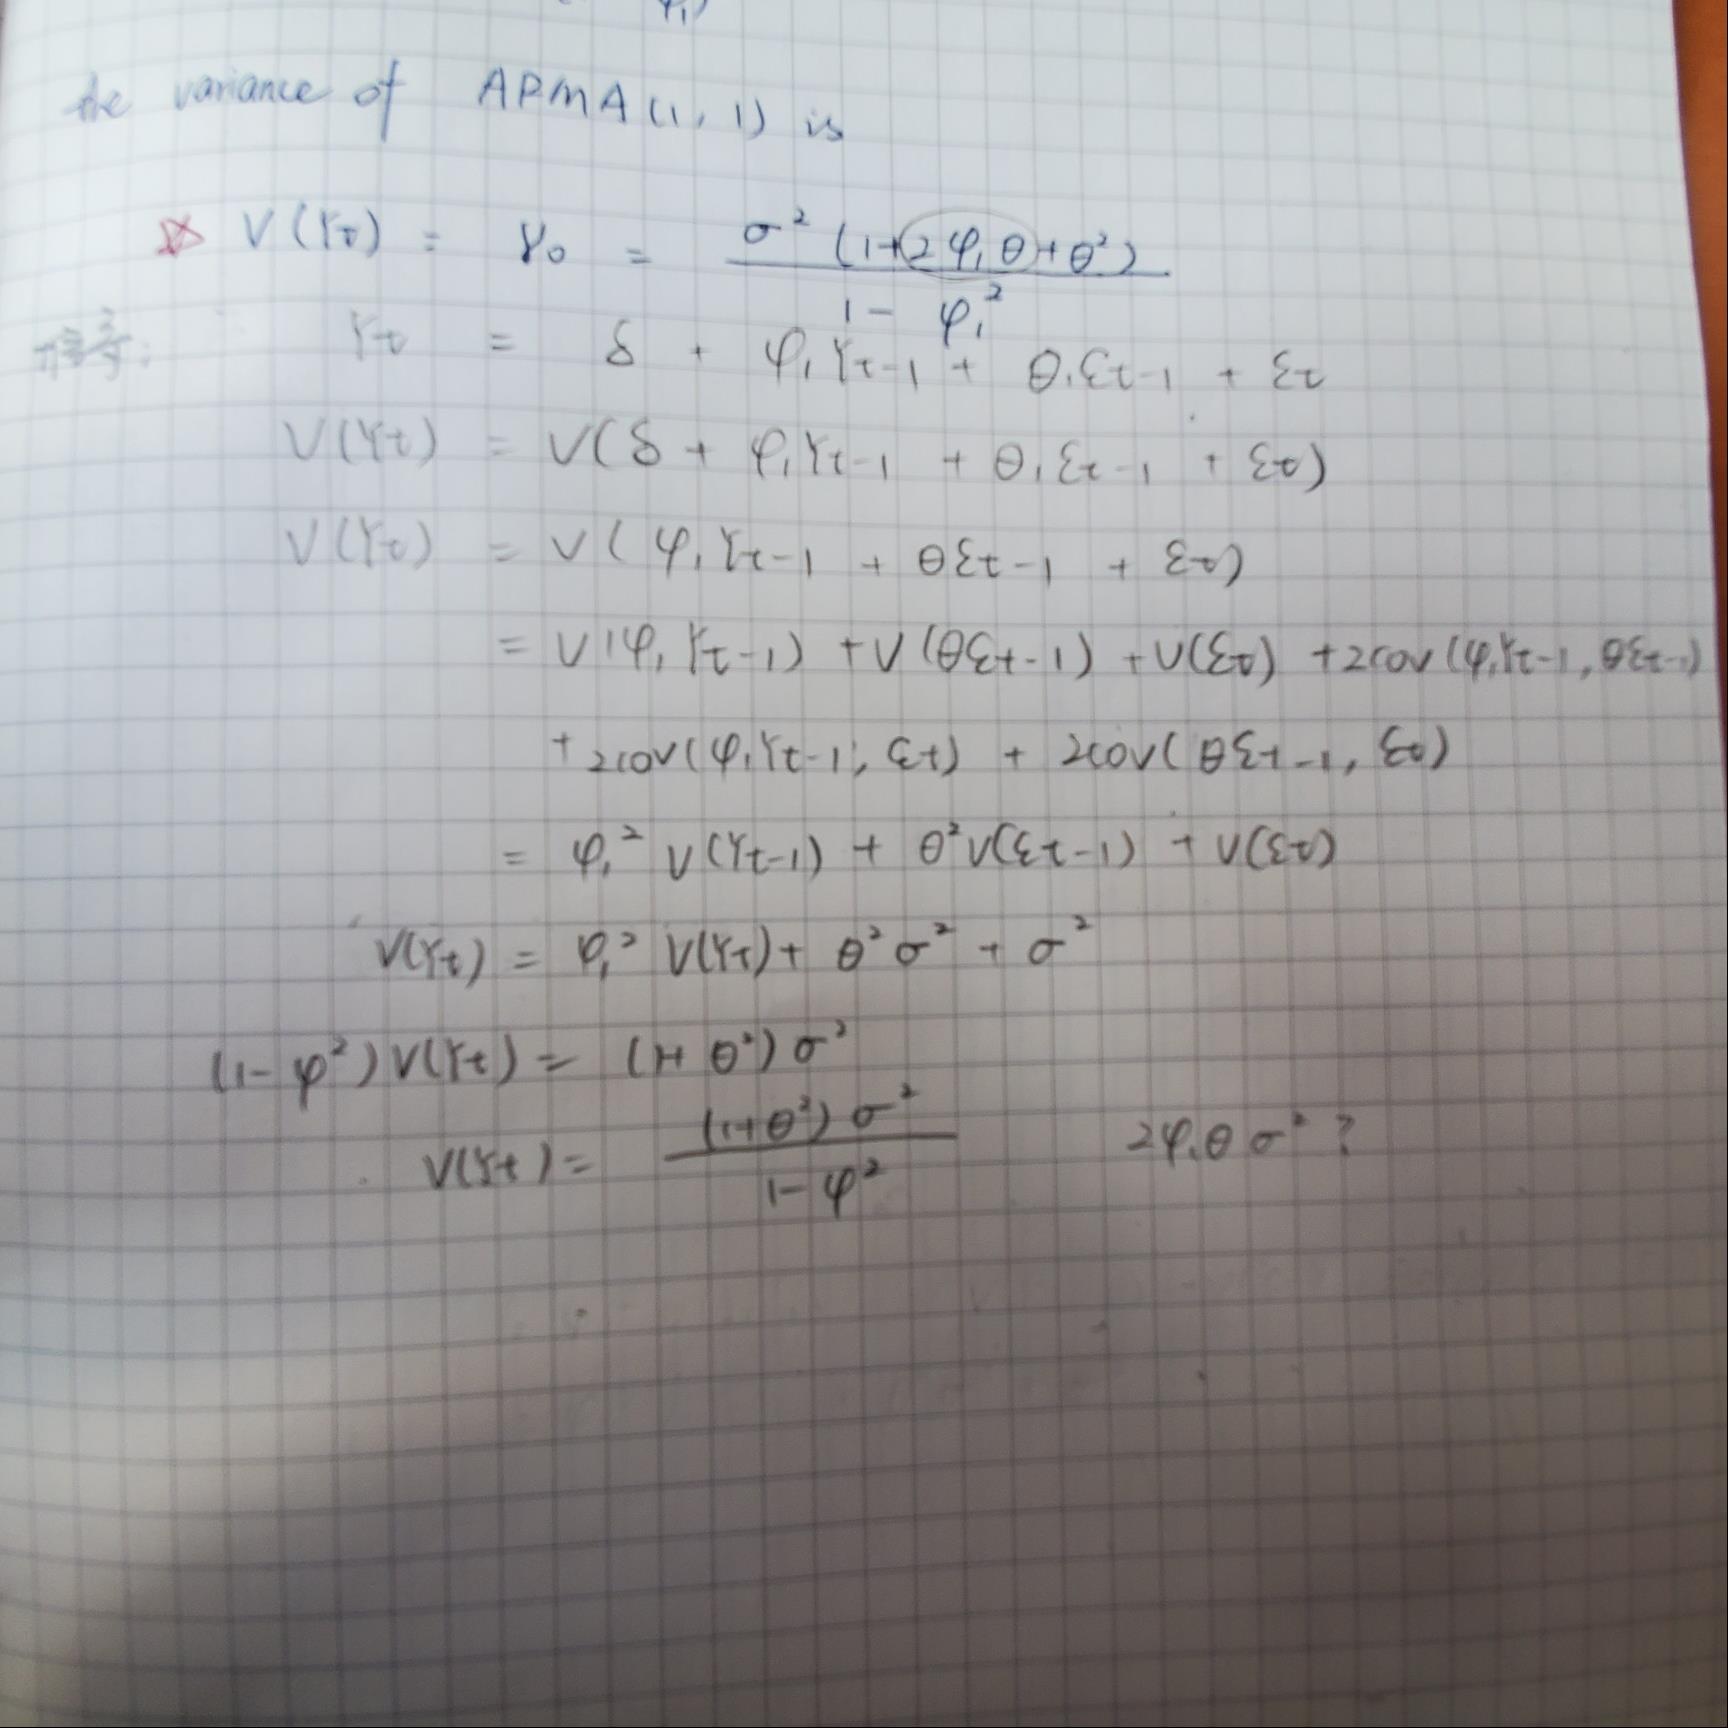 φ₁)
the variance of ARMA(1,1) is
☆ V(Yt) = γ₀ = σ²(1+2φ₁θ+θ²) / 1-φ₁²
推导: Yt = δ + φ₁Yt-1 + θ₁εt-1 + εt
V(Yt) = V(δ + φ₁Yt-1 + θ₁εt-1 + εt)
V(Yt) = V(φ₁Yt-1 + θεt-1 + εt)
= V(φ₁Yt-1) + V(θεt-1) + V(εt) + 2cov(φ₁Yt-1, θεt-1)
+ 2cov(φ₁Yt-1, εt) + 2cov(θεt-1, εt)
= φ₁²V(Yt-1) + θ²V(εt-1) + V(εt)
V(Yt) = φ₁²V(Yt) + θ²σ² + σ²
(1-φ²)V(Yt) = (1+θ²)σ²
V(Yt) = (1+θ²)σ² / 1-φ² 2φ₁θσ²?